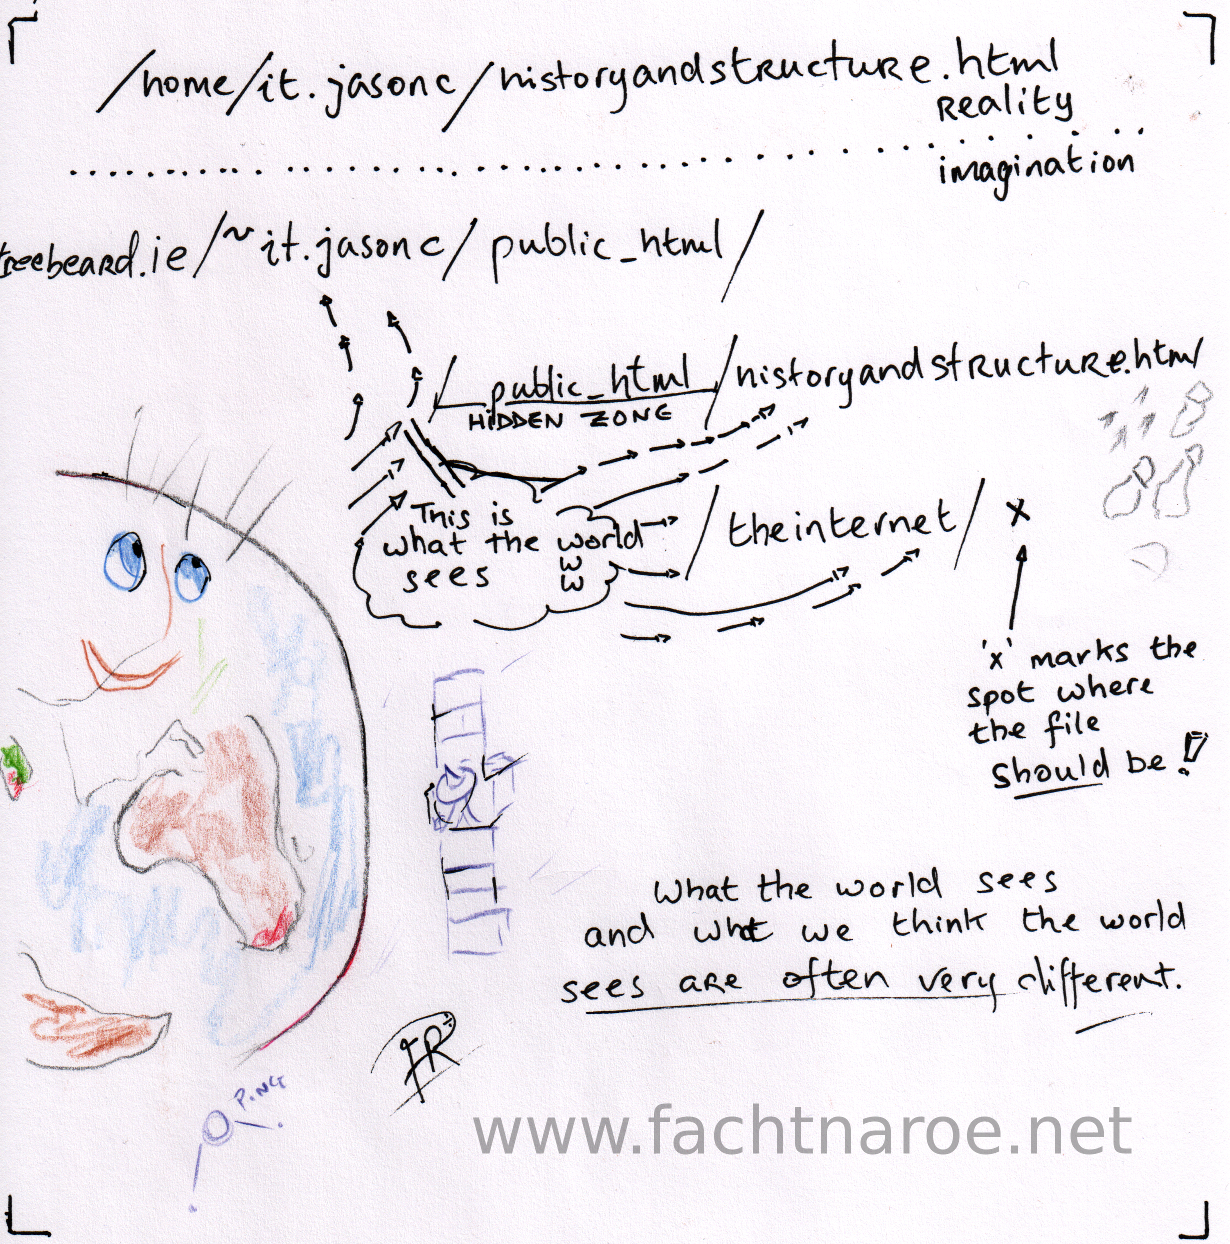 /home/it.jasonc/historyandstructure.html
reality
imagination
treebeard.ie/~it.jasonc/public_html/
/public_html/historyandstructure.html
HIDDEN ZONE
This is
what the world
sees
W
W
/theinternet/x
'x' marks the
spot where
the file
should be!
What the world sees
and what we think the world
sees are often very different.
FR
P.NG
www.fachtnaroe.net